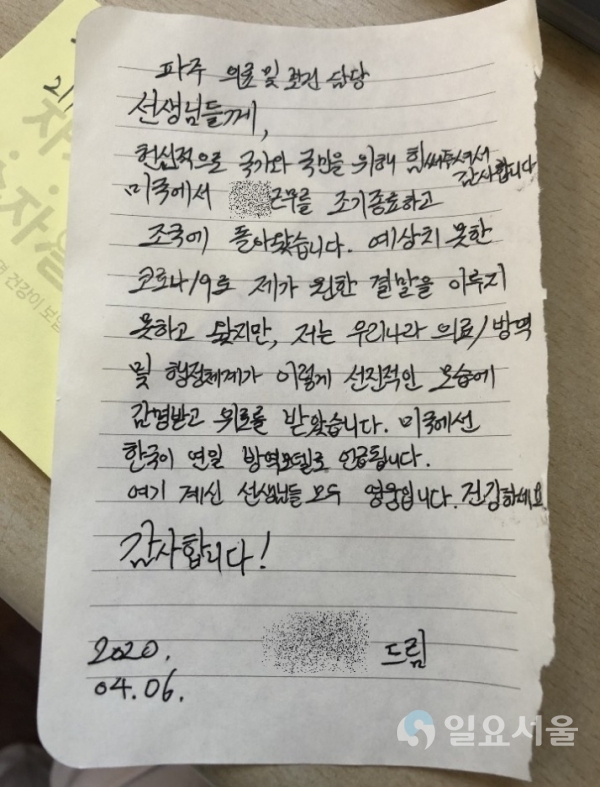 파주 의료 및 보건 담당
선생님들께,
헌신적으로 국가와 국민을 위해 힘써주셔서
감사합니다
미국에서 근무를 조기종료하고
조국에 돌아왔습니다. 예상치 못한
코로나19로 제가 원한 결말을 이루지
못하고 왔지만, 저는 우리나라 의료/방역
및 행정체계가 이렇게 선진적인 모습에
감명받고 위로를 받았습니다. 미국에선
한국이 연일 방역모델로 언급됩니다.
여기 계신 선생님들 모두 영웅입니다. 건강하세요
감사합니다!
2020. 드림
04.06.
일요서울